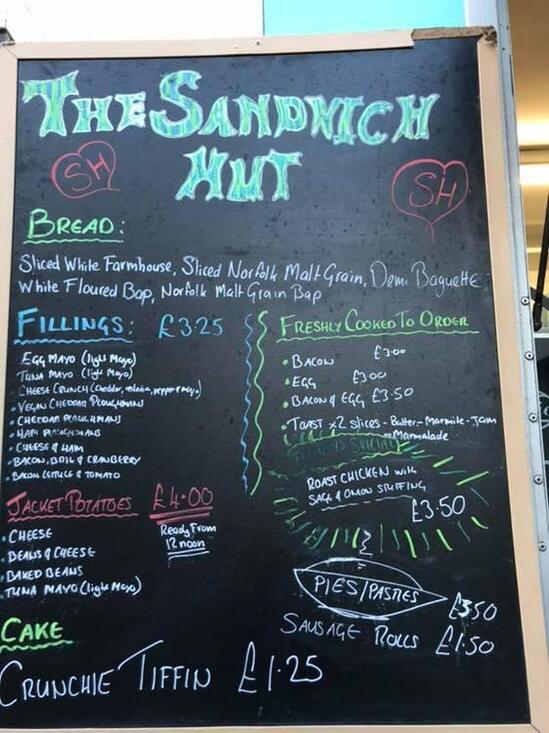 THE SANDWICH
HUT
SH
SH
BREAD:
Sliced White Farmhouse, Sliced Norfolk Malt Grain, Demi Baguette
White Floured Bap, Norfolk Malt Grain Bap
FILLINGS: £3.25
EGG MAYO (light Mayo)
TUNA MAYO (light Mayo)
CHEESE CRUNCH (Cheddar,
• VEGAN CHEDDAR PLOUGHMANS
• CHEDDAR PLOUGHMANS
• HAM PLOUGHMANS
• CHEESE & HAM
• BACON, BRIE & CRANBERRY
• BACON LETTUCE & TOMATO
JACKET POTATOES £4.00
Ready From
12 noon
• CHEESE
• BEANS & CHEESE
• BAKED BEANS
• TUNA MAYO (light Mayo)
CAKE
CRUNCHIE TIFFIN £1.25
FRESHLY COOKED TO ORDER
• BACON £3.00
• EGG £3.00
• BACON & EGG £3.50
• TOAST x2 slices - Butter - Marmite - Jam
- Marmalade
SPECIAL
ROAST CHICKEN with
SAGE & ONION STUFFING
£3.50
PIES/PASTIES £3.50
SAUSAGE ROLLS £1.50